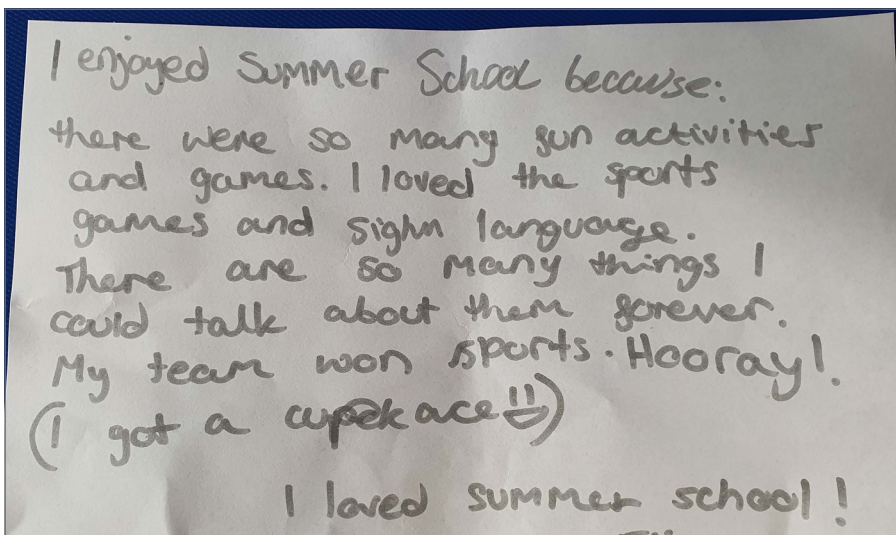 I enjoyed Summer School because:
there were so many fun activities
and games. I loved the sports
games and sighn language.
There are so many things I
could talk about them forever.
My team won sports. Hooray!
(I got a cupckace)
I loved summer school!